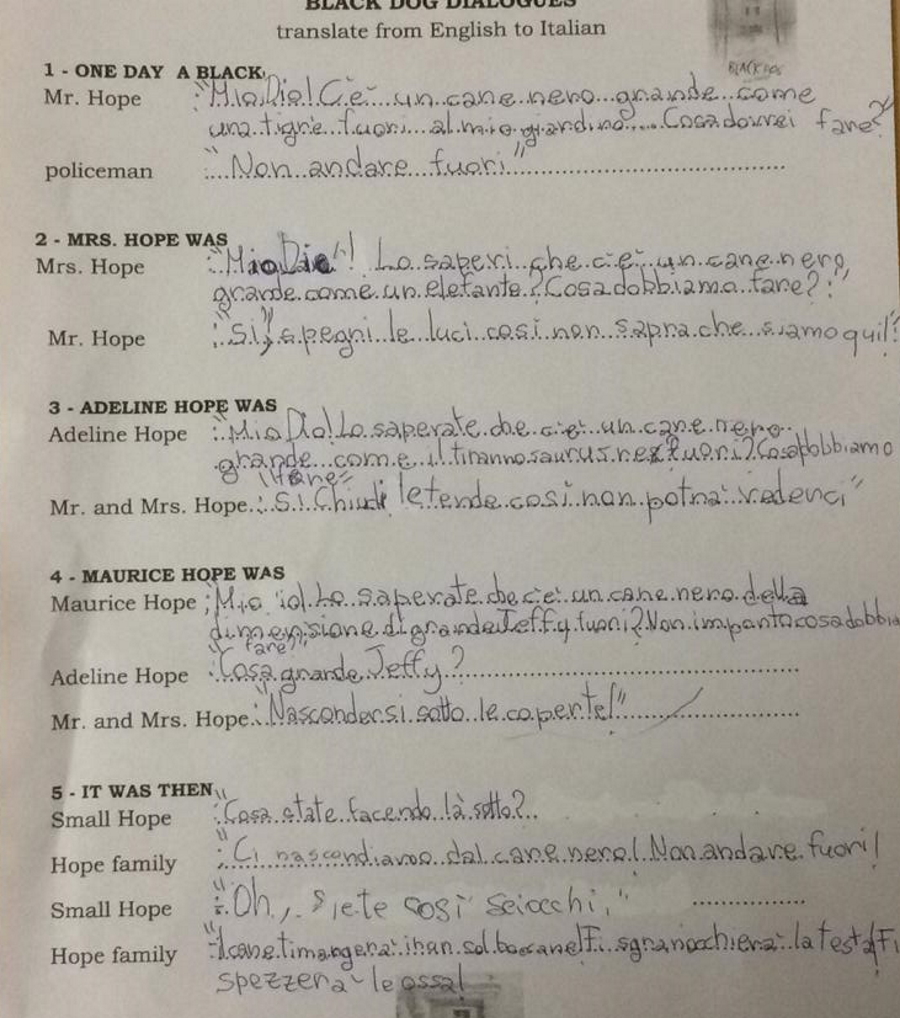 BLACK DOG DIALOGUES
translate from English to Italian
BLACK DOG
1 - ONE DAY A BLACK
Mr. Hope : "Mio Dio! C'è un cane nero grande come
una tigre fuori al mio giardino.... Cosa dovrei fare?"
policeman : "Non andare fuori"
2 - MRS. HOPE WAS
Mrs. Hope : "Mio Dio"! Lo saperi che c'è un cane nero
grande come un elefante? Cosa dobbiamo fare?:"
Mr. Hope : "Si", spegni le luci così non sapra che siamo qui!"
3 - ADELINE HOPE WAS
Adeline Hope : "Mio Dio! Lo saperate che c'è un cane nero
grande come il tirannosaurus rex fuori? Cosa dobbiamo
fare"
Mr. and Mrs. Hope : "Si Chiudi le tende così non potra' vederci"
4 - MAURICE HOPE WAS
Maurice Hope : Mio io! Lo saperate che c'è un cane nero della
dimensione di grande Jeffy fuori? Non importa cosa dobbia
fare?"
Adeline Hope : "Cosa grande Jeffy?
Mr. and Mrs. Hope : "Nascondersi sotto le coperte!"
5 - IT WAS THEN
Small Hope : "Cosa state facendo là sotto?
Hope family : "Ci nascondiamo dal cane nero! Non andare fuori!
Small Hope : "Oh, siete così sciocchi."
Hope family : "Il cane ti mangera' in un sol boccone! Ti sgranocchiera' la testa! Ti
spezzera' le ossa!